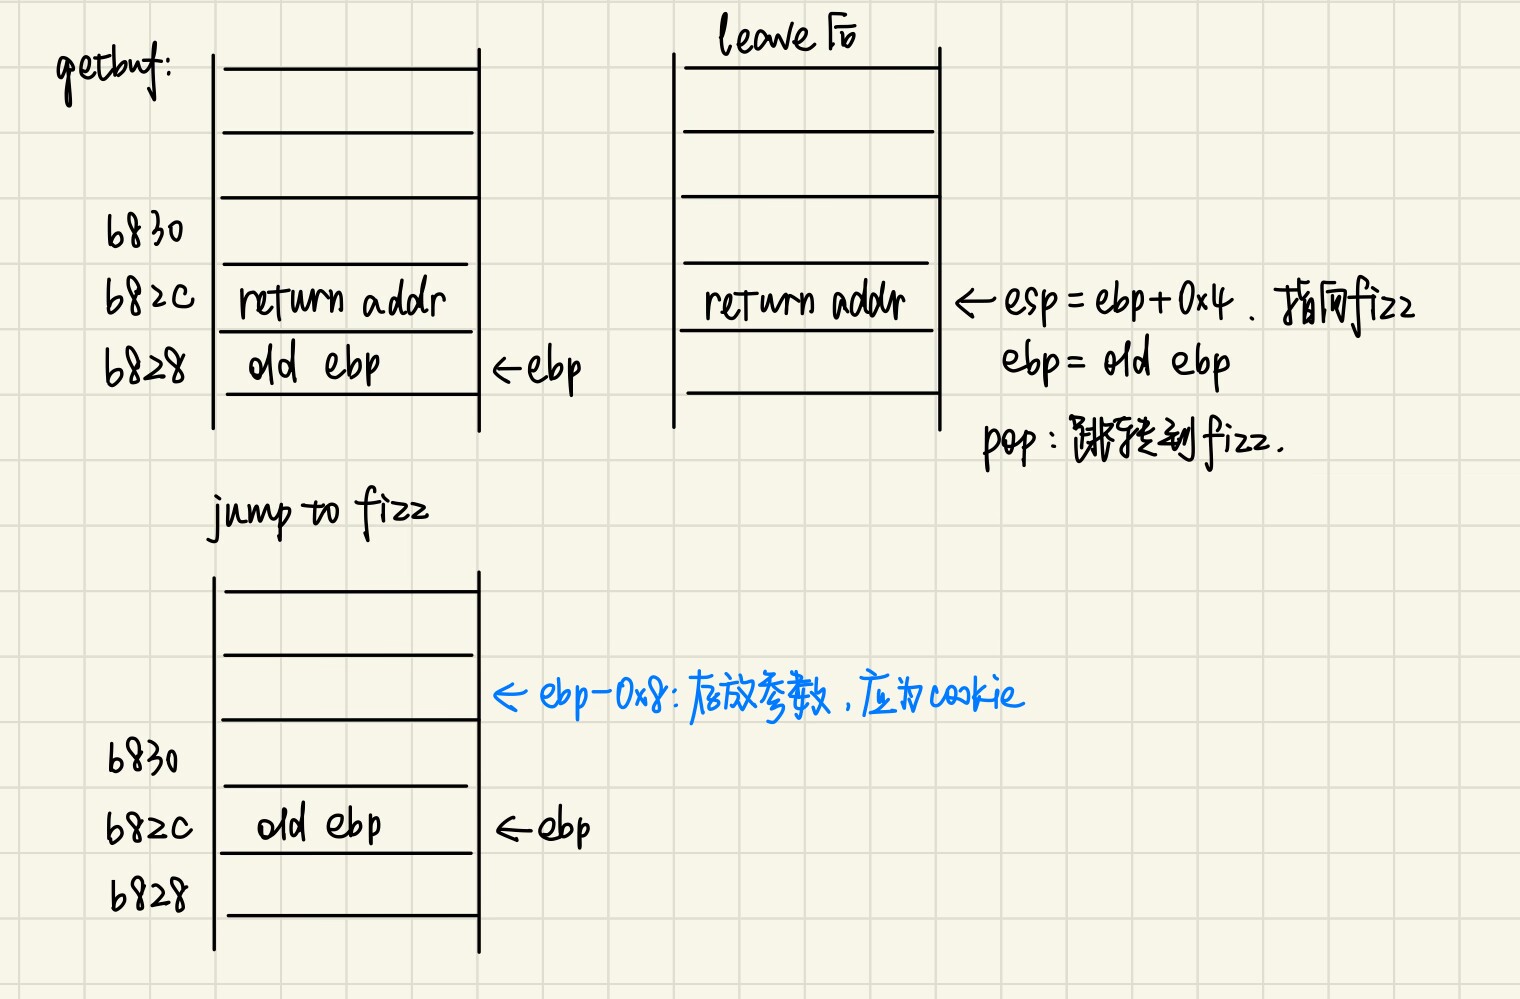 getbuf:
leave后
b830
b82c return addr
b828 old ebp ←ebp
return addr ← esp = ebp+0x4. 指向fizz
ebp = old ebp
pop: 跳转到fizz.
jump to fizz
← ebp-0x8: 存放参数, 应为cookie
b830
b82c old ebp ←ebp
b828